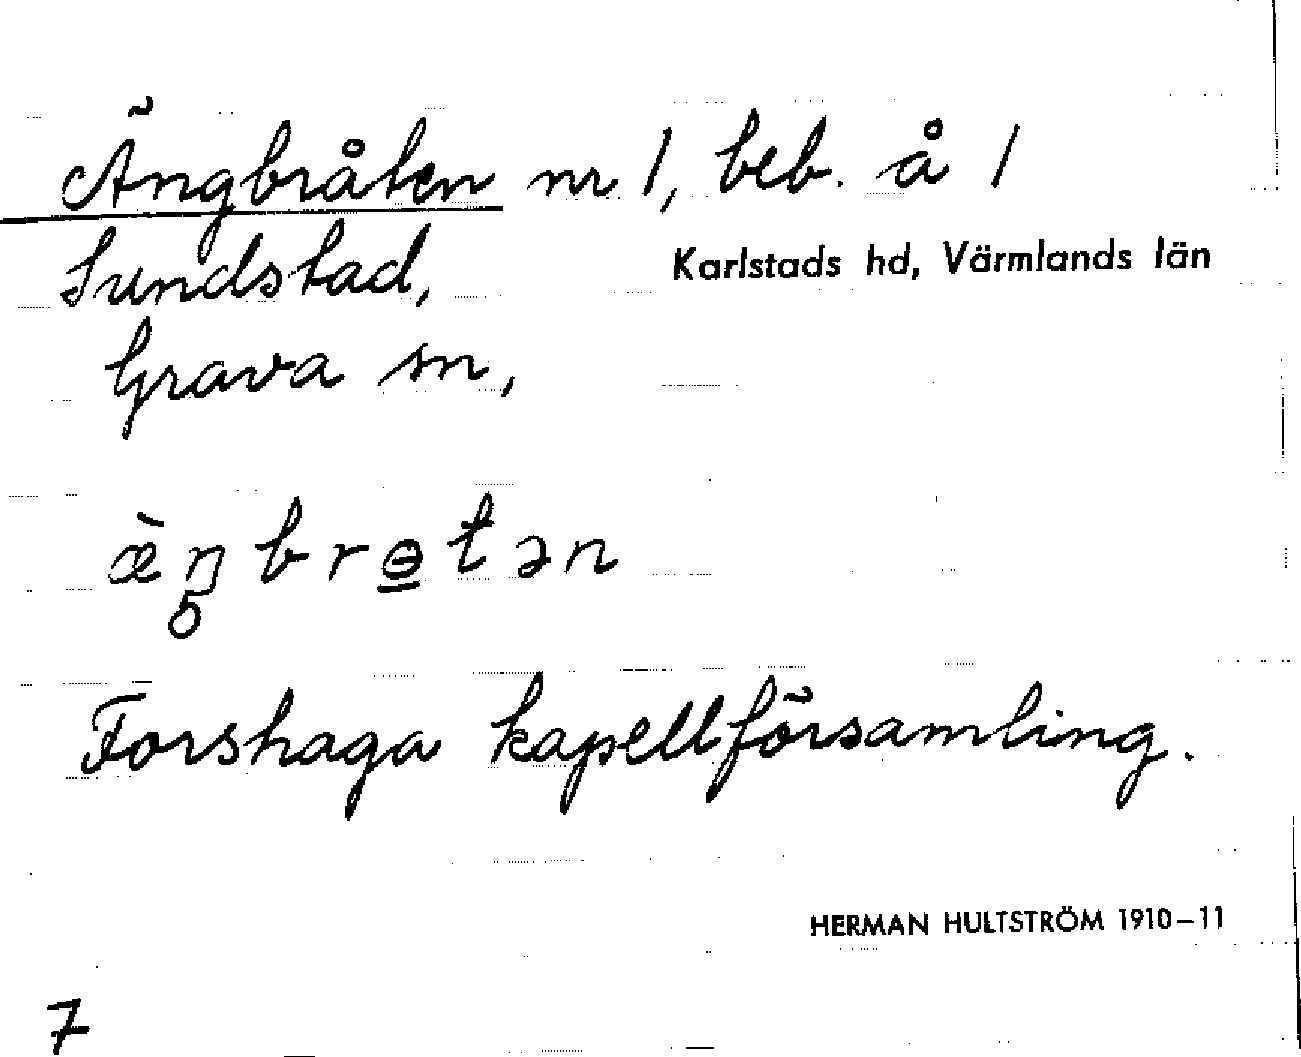 Ängbråten nr 1, beb. å 1
Sundstad,
Karlstads hd, Värmlands län
Grava sn,
æ̀ŋ̥brɵ̲tən
Forshaga kapellförsamling.
HERMAN HULTSTRÖM 1910–11
7